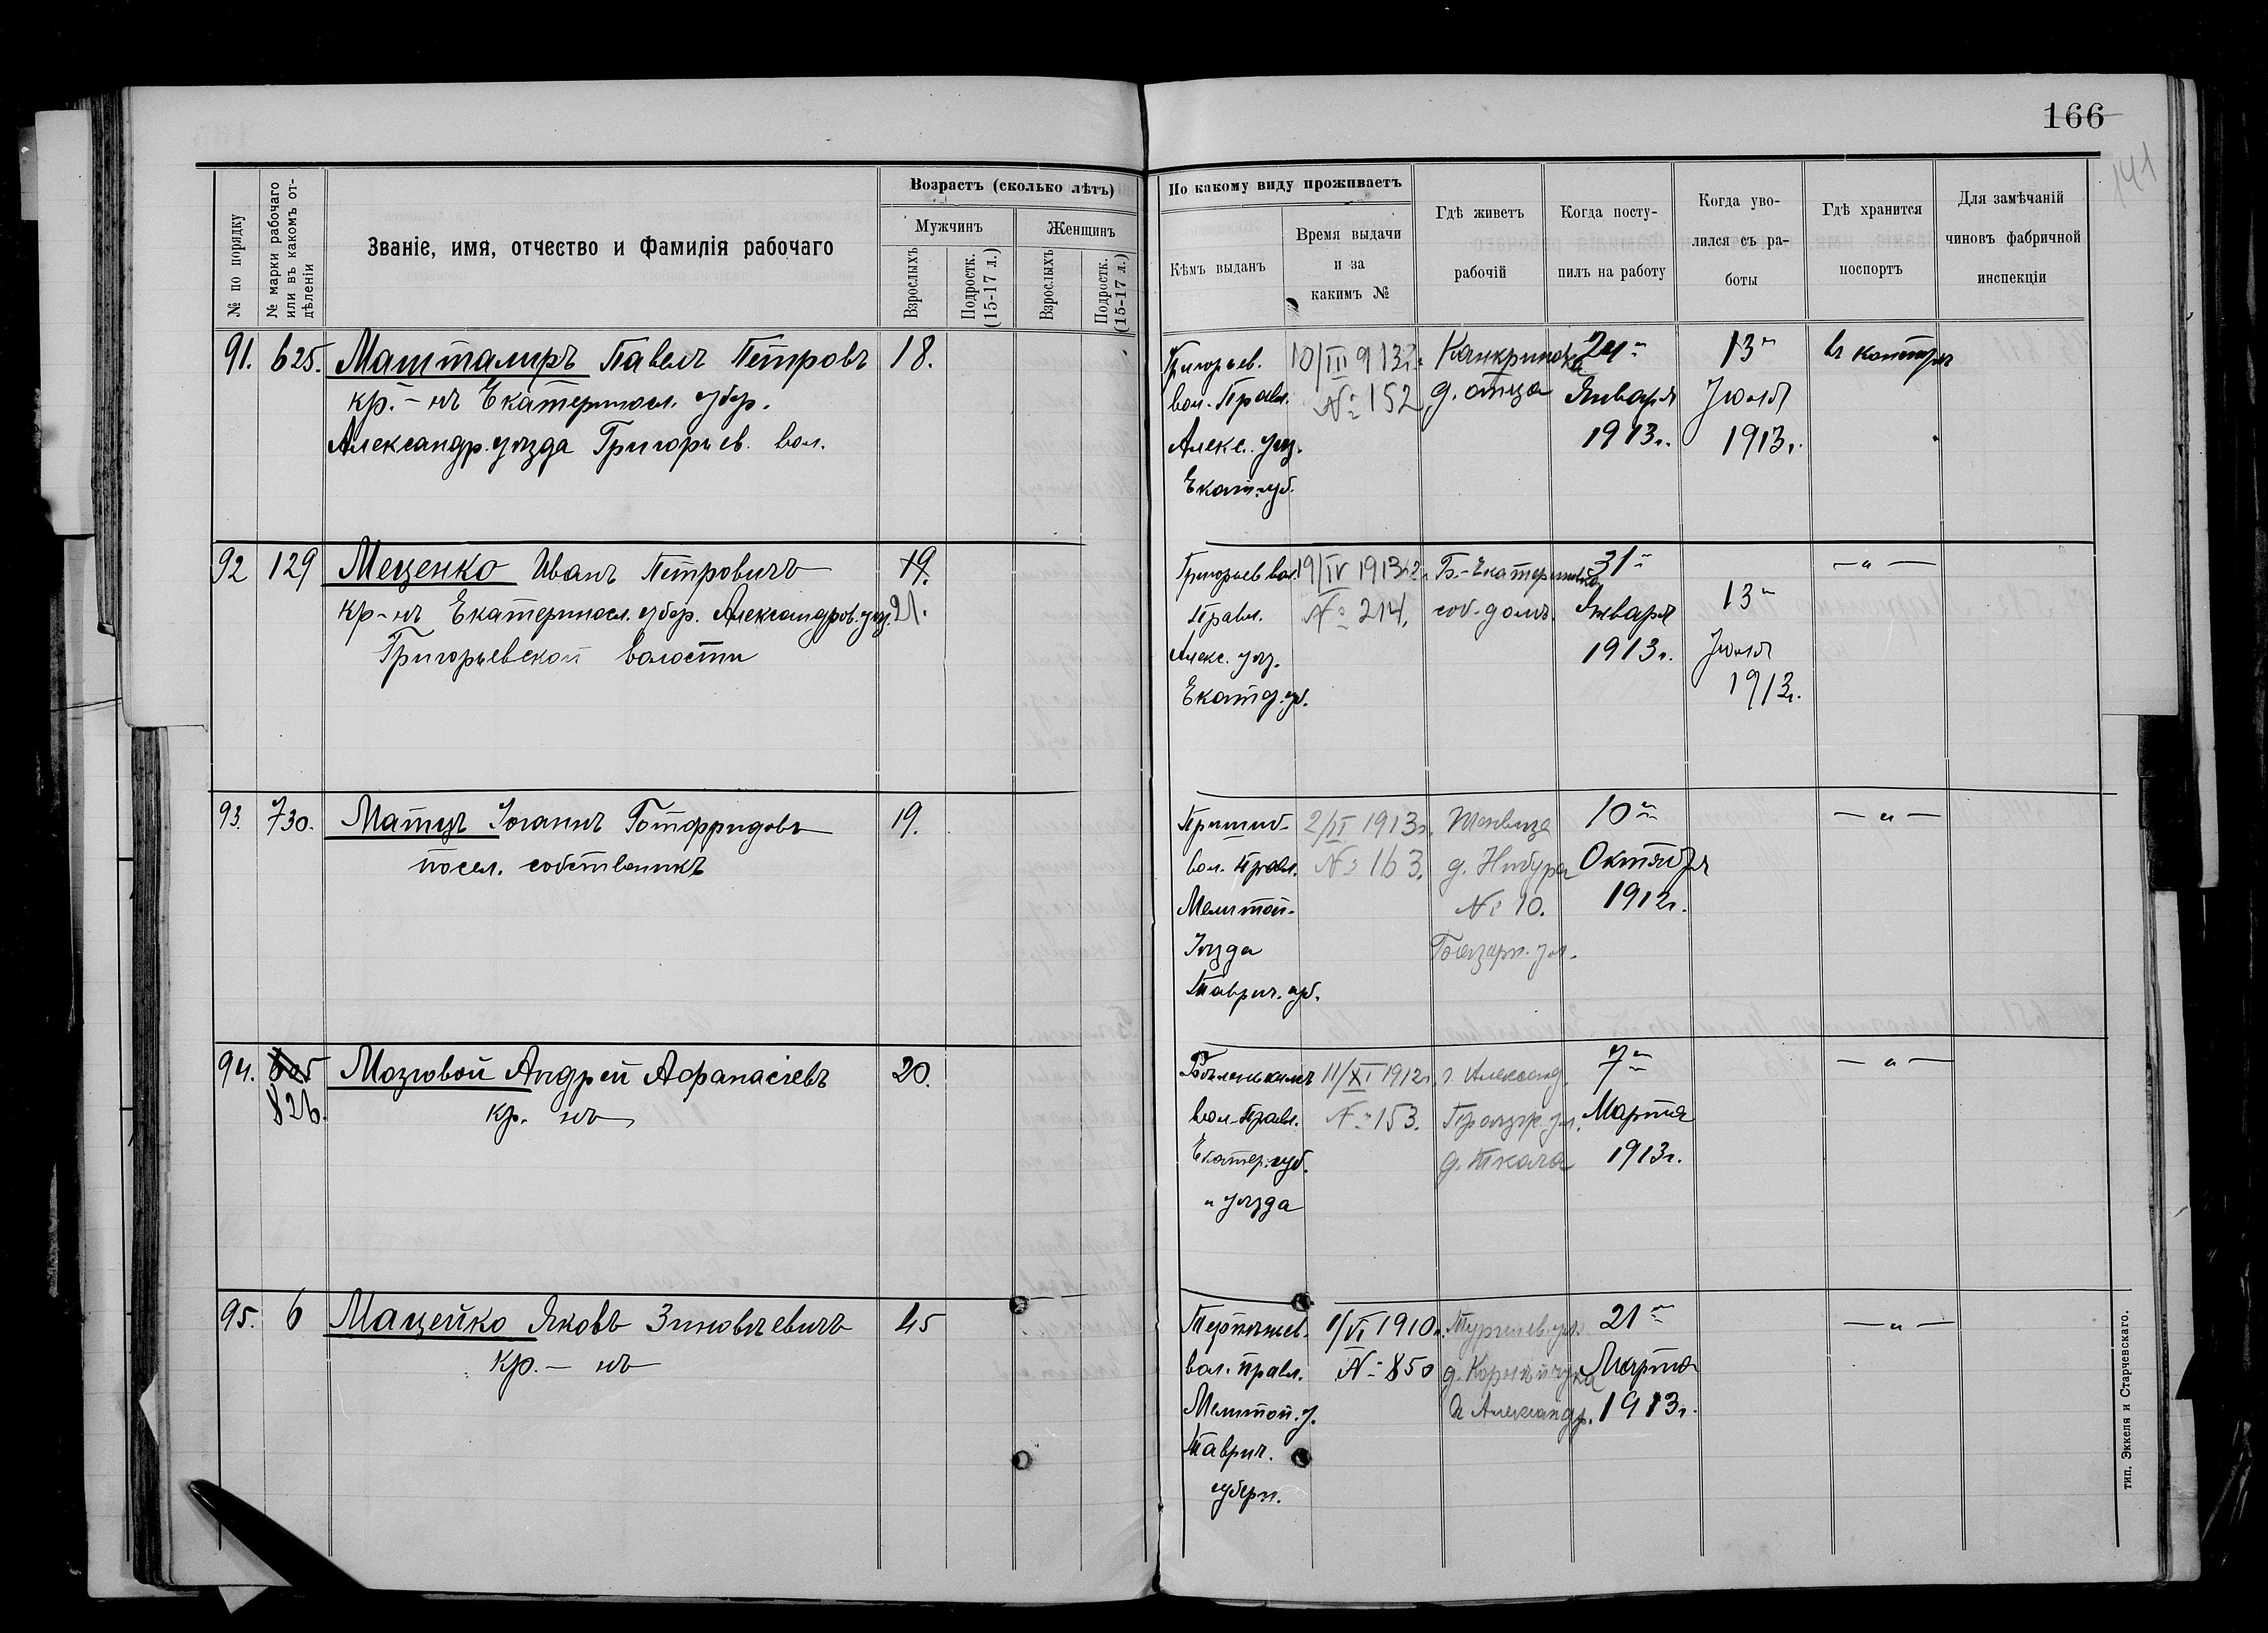 166
141
№ по порядку
№ марки рабочаго
или въ какомъ от-
дѣленіи
Званіе, имя, отчество и фамилія рабочаго
Возрастъ (сколько лѣтъ)
Мужчинъ
Женщинъ
Взрослыхъ
Подростк.
(15-17 л.)
Взрослыхъ
Подростк.
(15-17 л.)
По какому виду проживаетъ
Кѣмъ выданъ
Время выдачи
и за
какимъ №
Гдѣ живетъ
рабочій
Когда посту-
пилъ на работу
Когда уво-
лился съ ра-
боты
Гдѣ хранится
поспортъ
Для замѣчаній
чиновъ фабричной
инспекціи
91. 625. Машталиръ Павелъ Петровъ 18.
кр.-нъ Екатеринosл. губер.
Александр. уѣзда Григорьев. вол.
Григорьев.
вол. Правл.
Алекс. уѣз.
Екат. губ.
10/III 913г.
№ 152
Канкриновка
д. отца
24-
Января
1913г.
13-
Іюля
1913г.
въ конторѣ
92 129 Меценко Иванъ Петровичъ 19.
кр-нъ Екатериносл. губер. Александров. уѣз. 21.
Григорьевской волости
Григорьев вол.
Правл.
Алекс. уѣз.
Екат. губ.
19/IV 1913г.
№ 214.
Б.-Екатериновка
соб. домъ.
31-
Января
1913г.
13-
Іюля
1913г.
-"-
93. 730. Матцъ Іоганъ Готфридовъ 19.
посел. собственикъ
Пришиб-
вол. Правл.
Мелитоп-
Уѣзда
Таврич. губ.
2/VI 1913г.
№ 163.
Шенвиза
д. Нибура
№ 10.
Базарн. ул.
10-
Октября
1912г.
-"-
94. 826. Мозговой Андрей Афанасіевъ 20.
кр. нъ
вол. Правл.
Екатер. губ.
и уѣзда
11/XI 1912г.
№ 153.
г. Александ.
д. Ткача
7-
Марта
1913г.
-"-
95. 6 Мацейко Яковъ Зиновьевичъ 45
кр.- нъ
Терпѣніев.
вол. правл.
Мелитоп. у.
Таврич.
губерн.
1/VI 1910г.
№ 850
д. Корнѣйчука
въ Александр.
21-
Марта
1913г.
-"-
тип. Эккеля и Старчевскаго.